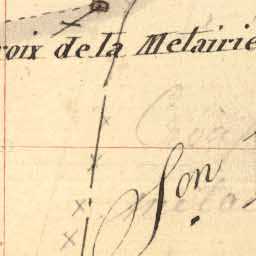 roix de la Metairie
Son